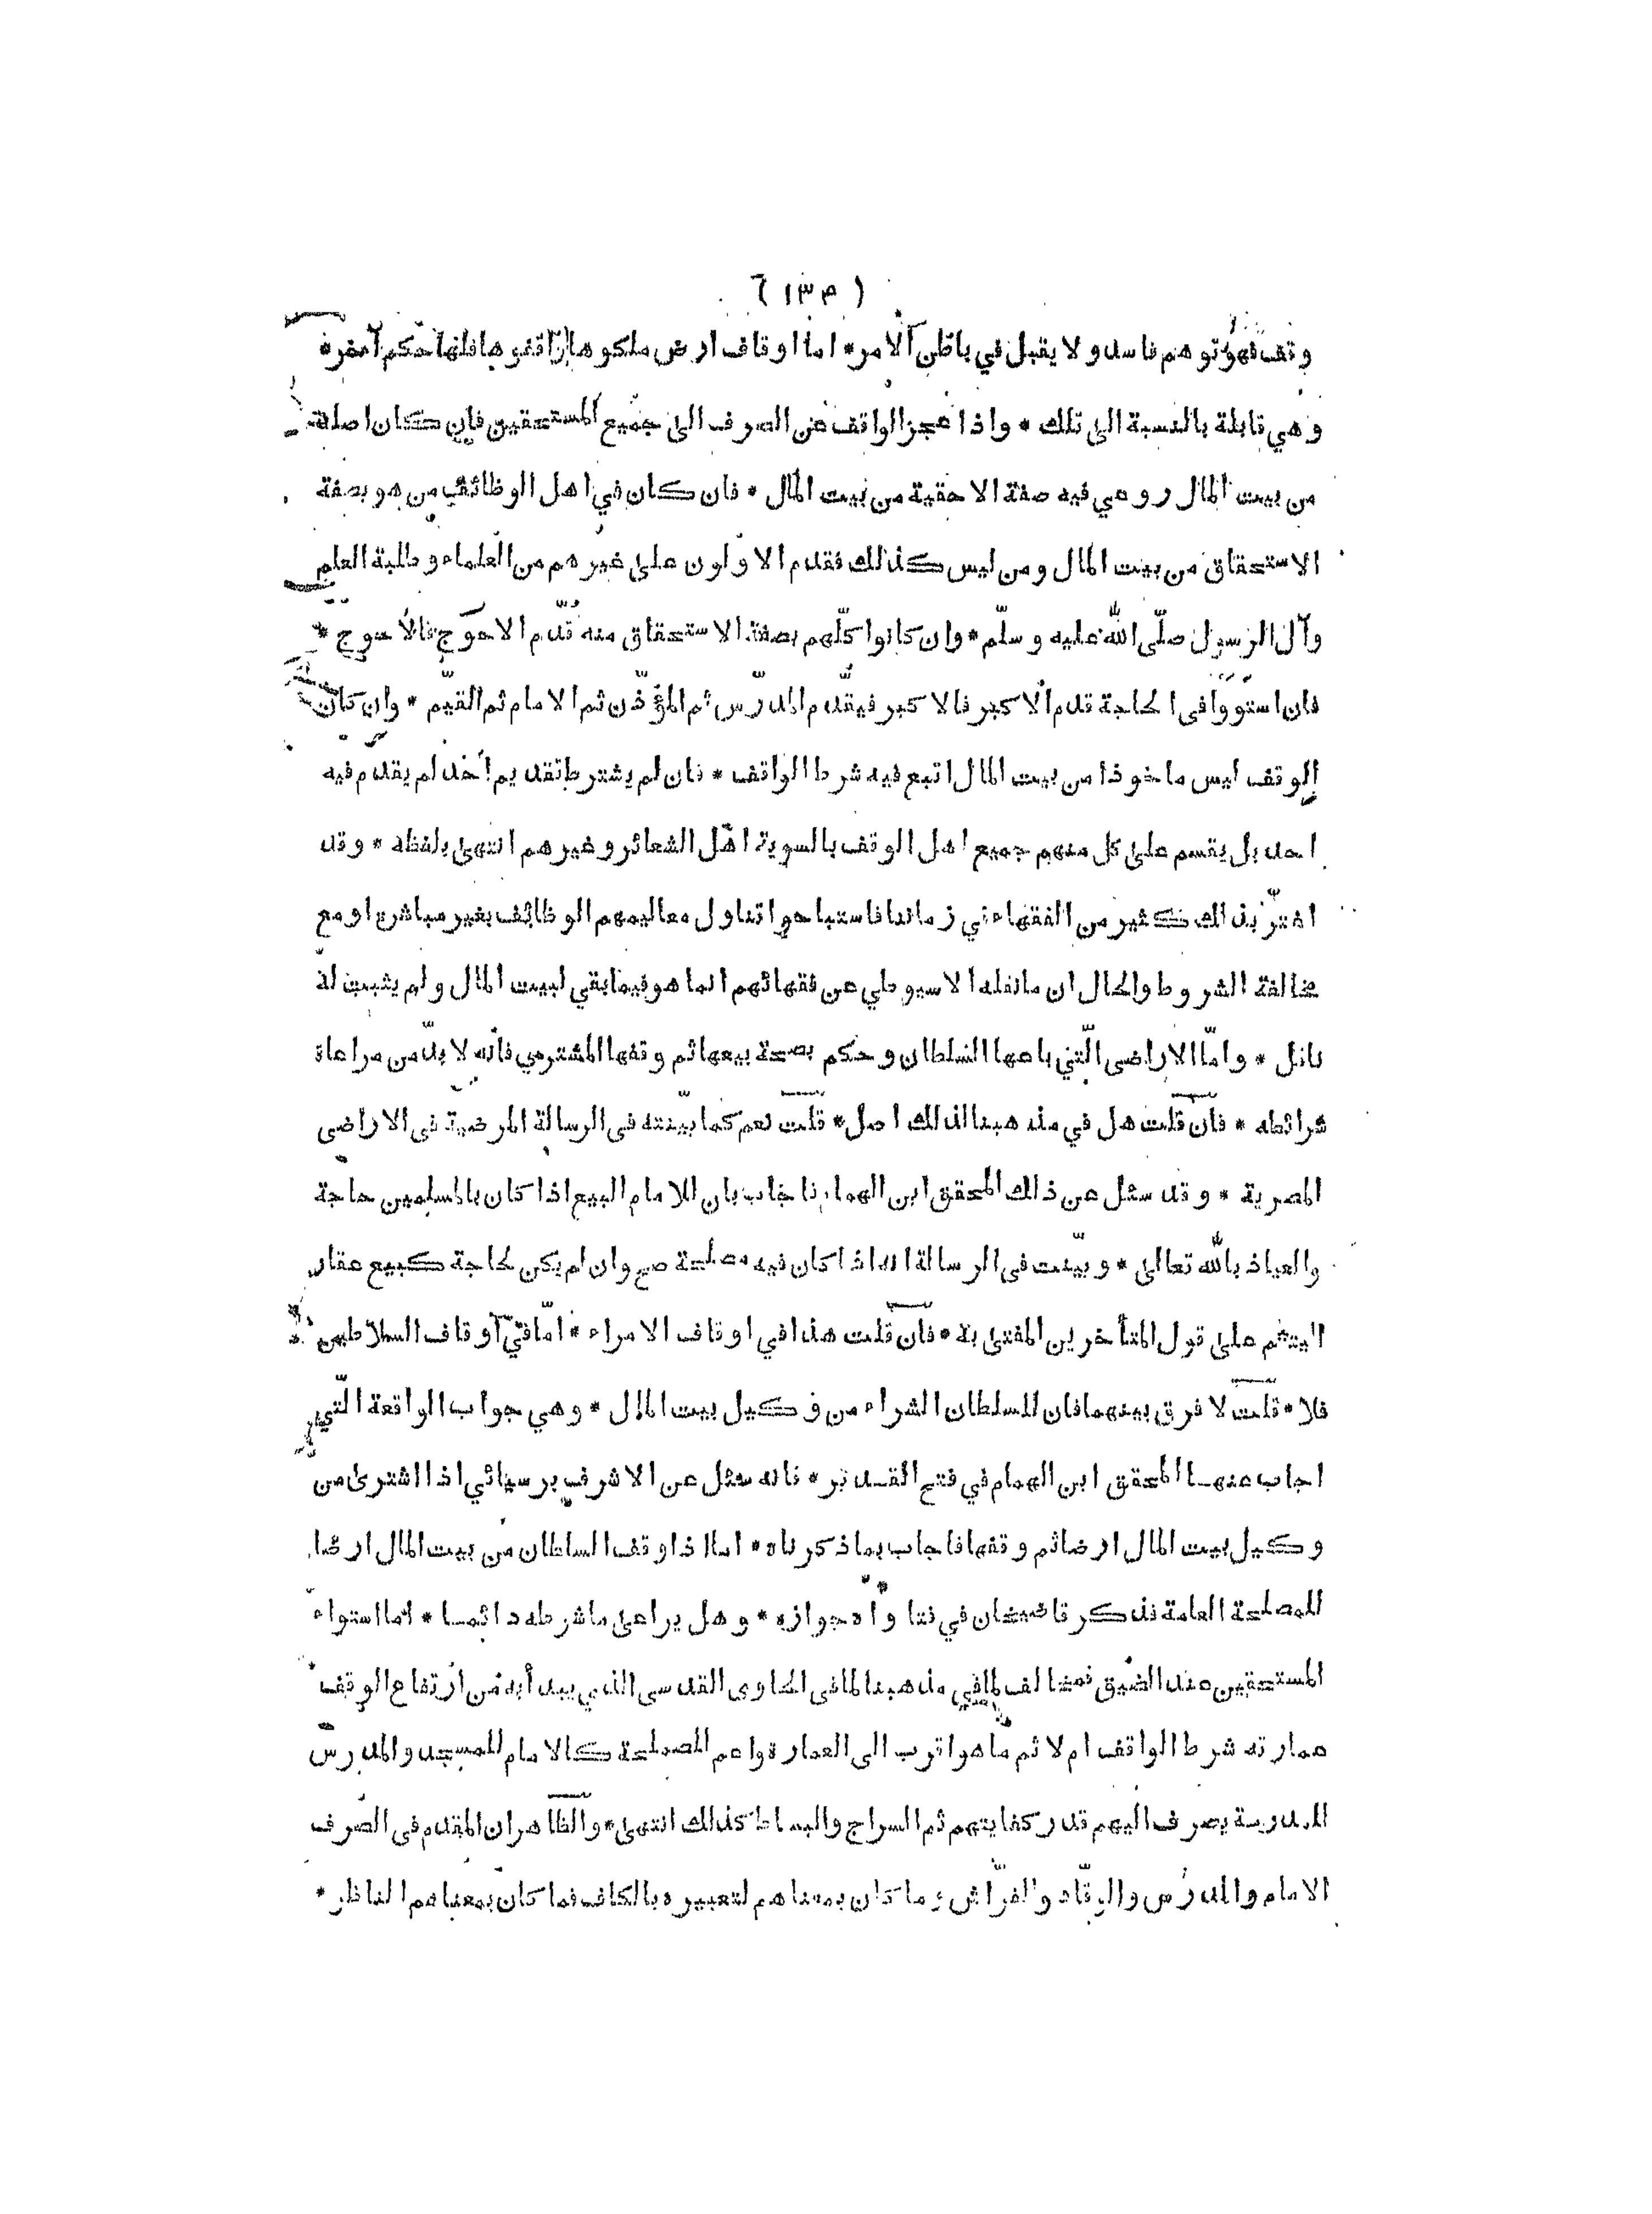 ( ١٣٤ )
وقف فهو توهم فاسد ولا يقبل في باطن الامر * اما اوقاف ارض ملكوها واقفوها فلها حكم آخر *
وهي قابلة بالنسبة الى تلك * واذا عجز الواقف عن الصرف الى جميع المستحقين فان كان اصله
من بيت المال روعي فيه صفة الاحقية من بيت المال * فان كان في اهل الوظائف من هو بصفة
الاستحقاق من بيت المال ومن ليس كذلك فقدم الاولون على غيرهم من العلماء وطلبة العلم
وآل الرسول صلّى اللّه عليه وسلّم * وان كانوا كلّهم بصفة الاستحقاق منه قدّم الاحوج فالاحوج *
فان استووا فى الحاجة قدم الاكبر فالاكبر فيقدّم المدرّس ثم المؤذّن ثم الامام ثم القيّم * وان كان
الوقف ليس ماخوذا من بيت المال اتبع فيه شرط الواقف * فان لم يشترط تقديم احد لم يقدم فيه
احد بل يقسم على كل منهم جميع اهل الوقف بالسوية اهل الشعائر وغيرهم انتهى بلفظه * وقد
اغترّ بذلك كثير من الفقهاء في زماننا فاستباحوا تناول معاليمهم الوظائف بغير مباشرة او مع
مخالفة الشروط والحال ان مانقله الاسيوطي عن فقهائهم انما هو فيما بقي لبيت المال ولم يثبت له
ناقل * وامّا الاراضى الّتي باعها السلطان وحكم بصحة بيعها ثم وقفها المشتري فانه لا بدّ من مراعاة
شرائطه * فان قلت هل في مذهبنا لذلك اصل * قلت نعم كما بيّنته فى الرسالة المرضية فى الاراضى
المصرية * وقد سئل عن ذلك المحقق ابن الهمام فاجاب بان للامام البيع اذا كان بالمسلمين حاجة
والعياذ باللّه تعالى * وبيّنت فى الرسالة انه اذا كان فيه مصلحة صح وان لم يكن لحاجة كبيع عقار
اليتيم على قول المتأخرين المفتى به * فان قلت هذا في اوقاف الامراء * امّا في اوقاف السلاطين
فلا * قلت لا فرق بينهما فان للسلطان الشراء من وكيل بيت المال * وهي جواب الواقعة الّتي
اجاب عنهـا المحقق ابن الهمام في فتح القـدير * فانه سئل عن الاشرف برسبائي اذا اشترى من
وكيل بيت المال ارضا ثم وقفها فاجاب بما ذكرناه * اما اذا وقف السلطان من بيت المال ارضا
للمصلحة العامة فذكر قاضيخان في فتاواه جوازه * وهل يراعى ما شرطه دائمـا * اما استواء
المستحقين عند الضيق فمخالف لما في مذهبنا لما فى الحاوى القدسى الذي يبدأ به من ارتفاع الوقف
عمارته شرط الواقف ام لا ثم ما هو اقرب الى العمارة واعم للمصلحة كالامام للمسجد والمدرّس
للمدرسة يصرف اليهم قدر كفايتهم ثم السراج والبساط كذلك انتهى * والظاهر ان المقدم فى الصرف
الامام والمدرّس والوقّاد والفرّاش وما كان بمعناهم لتعبيره بالكاف فما كان بمعناهم الناظر *